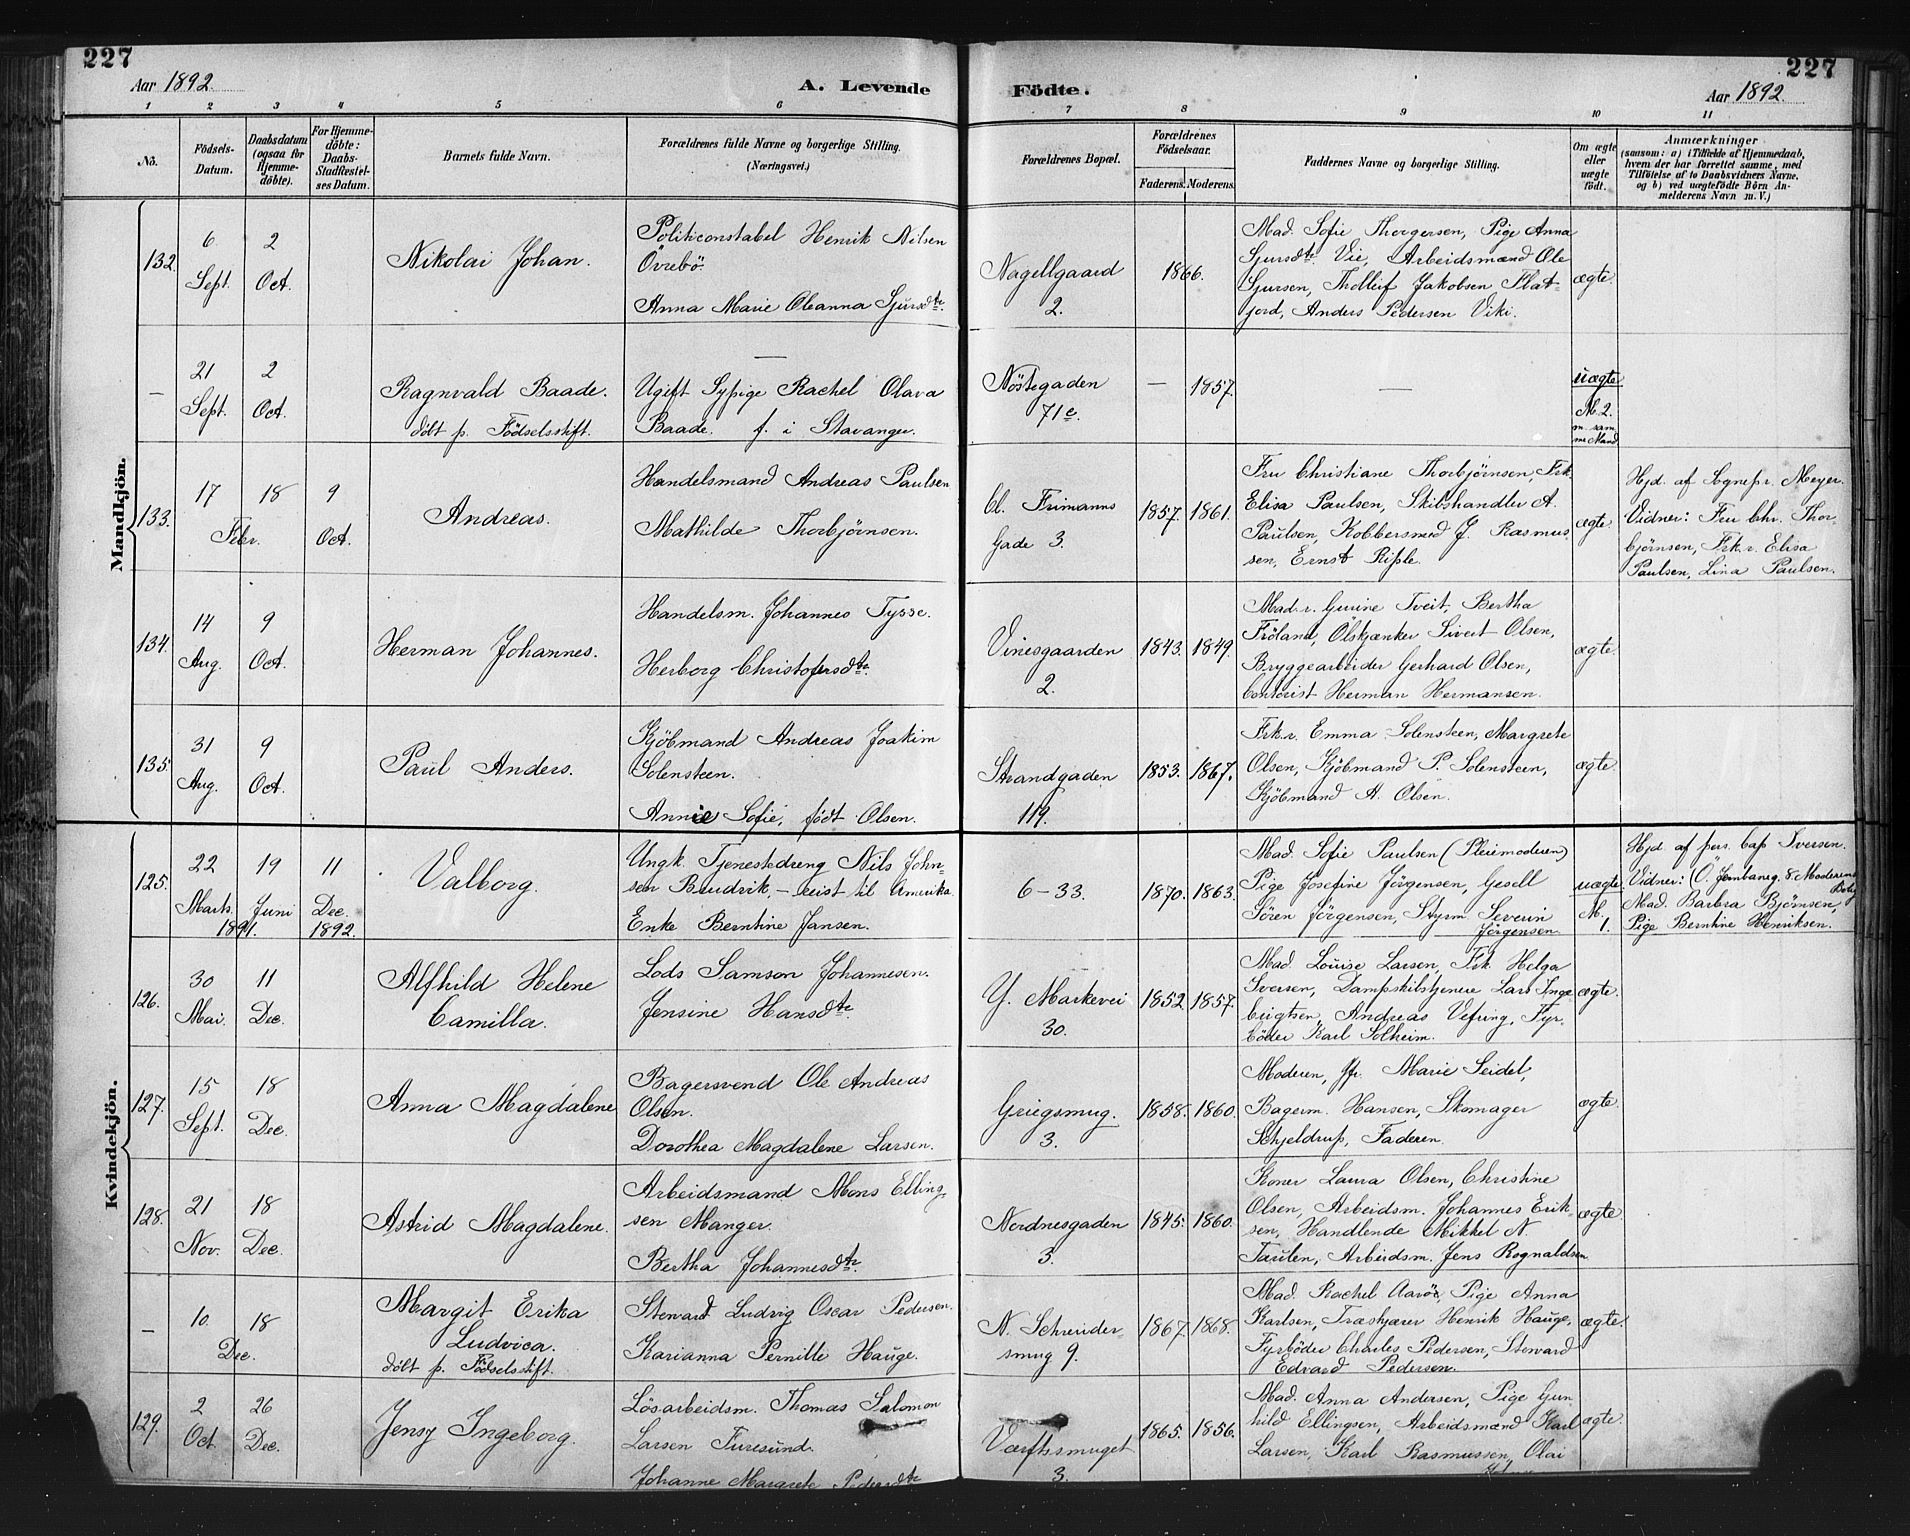 227 227
Aar 1892. A. Levende Födte. Aar 1892.
1 2 3 4 5 6 7 8 9 10 11
No. Födsels-Datum. Daabsdatum (ogsaa for Hjemme-döbte). For Hjemme-döbte: Daabs-Stadfæstel-ses Datum. Barnets fulde Navn. Forældrenes fulde Navne og borgerlige Stilling. (Næringsvei.) Forældrenes Bopæl. Forældrenes Födselsaar. Faderens. Moderens. Faddernes Navne og borgerlige Stilling. Om ægte eller uægte födt. Anmærkninger
(saasom: a) i Tilfælde af Hjemmedaab,
hvem der har forrettet samme, med
Tilföielse af to Daabsvidners Navne,
og b) ved uægtefödte Börn An-
melderens Navn m. V.)
Mandkjön.
132. 6 Sept. 2 Oct. Nikolai Johan.
Politiconstabel Henrik Nilsen
Övrebö.
Anna Marie Oleanna Sjursdtr.
Nagellgaard
2.
1866.
Mad. Sofie Thorgersen, Pige Anna
Sjursdtr. Vie, Arbeidsmænd Ole
Sjursen, Tholleif Jakobsen Flat-
jord, Anders Pedersen Viki.
ægte.
— 21 Sept. 2 Oct. Ragnvald Baade.
döbt p. Födselsstift.
—
Ugift Sypige Rachel Olava
Baade. f. i Stavanger.
Nöstegaden
71e.
— 1857.
—
uægte
M. 2.
m. sam-
me Mand
133. 17 18 Febr. 9 Oct. Andreas.
Handelsmand Andreas Paulsen
Mathilde Thorbjørnsen.
Cl. Frimanns
Gade 3.
1857. 1861.
Fru Christiane Thorbjørnsen, Frk.
Elisa Paulsen, Skibshandler A.
Paulsen, Kobbersmed J. Rasmus-
sen, Ernst Riple.
ægte.
Hjd. af Sognepr. Meyer.
Vidner: Fru Chr. Thor-
bjørnsen, Frk.r. Elisa
Paulsen, Lina Paulsen.
134. 14 Aug. 9 Oct. Herman Johannes.
Handelsm. Johannes Tysse.
Herborg Christofersdtr.
Vinesgaarden
2.
1843. 1849.
Mad.r. Gurine Tveit, Bertha
Fröland, Ölskjænker Sivert Olsen,
Bryggearbeider Gerhard Olsen,
Contorist Herman Hermansen.
ægte.
135. 31 Aug. 9 Oct. Paul Anders.
Kjöbmand Andreas Joakim
Solensteen.
Annie Sofie, född Olsen.
Strandgaden
119.
1853. 1867.
Frk.r. Emma Solensteen, Margrete
Olsen, Kjöbmand P. Solensteen,
Kjöbmand A. Olsen.
ægte.
Kvindekjön.
125. 22 Marts. 19 Juni 1891. 11 Dec. 1892. Valborg.
Ungk. Tjenestedreng Nils John-
sen Bruvik, – reist til Amerika
Enke Berntine Jansen.
6 – 33.
1870. 1863.
Mad. Sofie Paulsen (Pleiemoderen)
Pige Josefine Jörgensen, Gesell
Sören Jörgensen, Styrm. Severin
Jörgensen.
uægte.
M.
1.
Hjd. af pers. Cap. Iversen.
Vidner: (Ö. Jernbaneg. 8 Moderens
Bolig
Mad. Barbra Bjørnsen,
Pige Berntine Henriksen.
126. 30 Mai. 11 Dec. Alfhild Helene
Camilla.
Lods Samson Johannesen.
Jensine Hansdtr.
Y. Markevei
30.
1852. 1857.
Mad. Louise Larsen, Frk. Helga
Iversen, Dampskibstjener Lars Inge-
brigtsen, Andreas Vefring, Fyr-
böder Karl Solheim.
ægte.
127. 15 Sept. 18 Dec. Anna Magdalene
Bagersvend Ole Andreas
Olsen.
Dorothea Magdalene Larsen.
Griegsmug.
3.
1858. 1860.
Moderen, Jfr. Marie Seidel,
Bagerm. Hansen, Skomager
Schjeldrup, Faderen.
ægte.
128. 21 Nov. 18 Dec. Astrid Magdalene.
Arbeidsmand Mons Elling-
sen Manger.
Bertha Johannesdtr.
Nordnesgaden
3.
1845. 1860.
Koner Laura Olsen, Christine
Olsen, Arbeidsm. Johannes Erik-
sen, Handlende Mikkel N.
Taulen, Arbeidsm. Jens Rognaldsen
ægte.
— 10 18 Dec. Margit Erika
Ludvica.
döbt p. Födselsstift.
Steward Ludvig Oscar Pedersen.
Karianna Pernille Hauge.
N. Schreuder-
smug 9.
1867. 1868.
Mad. Rachel Aaröe, Pige Anna
Karlsen, Træskjærer Henrik Hauge,
Fyrböder Charles Pedersen, Steward
Edvard Pedersen.
ægte.
129. 2 Oct. 26 Dec. Jensy Ingeborg.
Lösarbeidsm. Thomas Salomon
Larsen Furesund.
Johanne Margrete Pedersdtr
Værftssmuget
3.
1865. 1856.
Mad. Anna Andersen, Pige Gun-
hild Ellingsen, Arbeidsmænd Karl
Larsen, Karl Rasmussen, Olai
ægte.